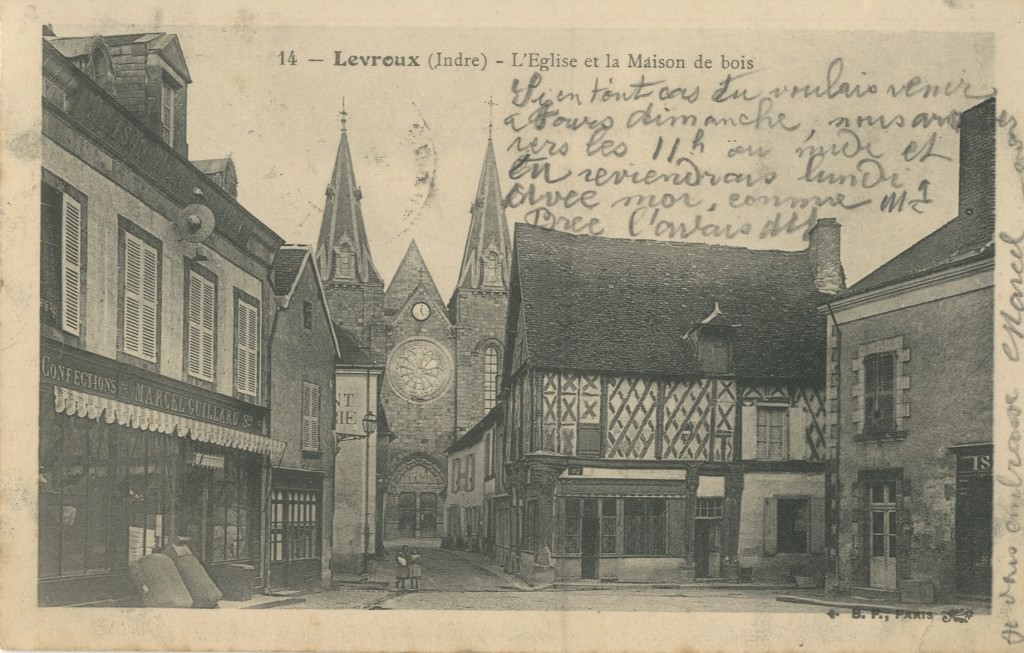 14 – Levroux (Indre) – L'Eglise et la Maison de bois
Si en tout cas tu voulais venir
à Tours dimanche, nous
vers les 11h ou midi et
tu reviendrais lundi
avec moi, comme
CONFECTIONS MARCEL GUILLARD Sr
NT
RIE
IS
B. F., PARIS
Je vous embrasse Marcel